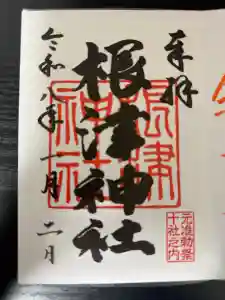 奉拝
根津神社
令和八年一月二日
根津神社
元准勅祭
十社之内